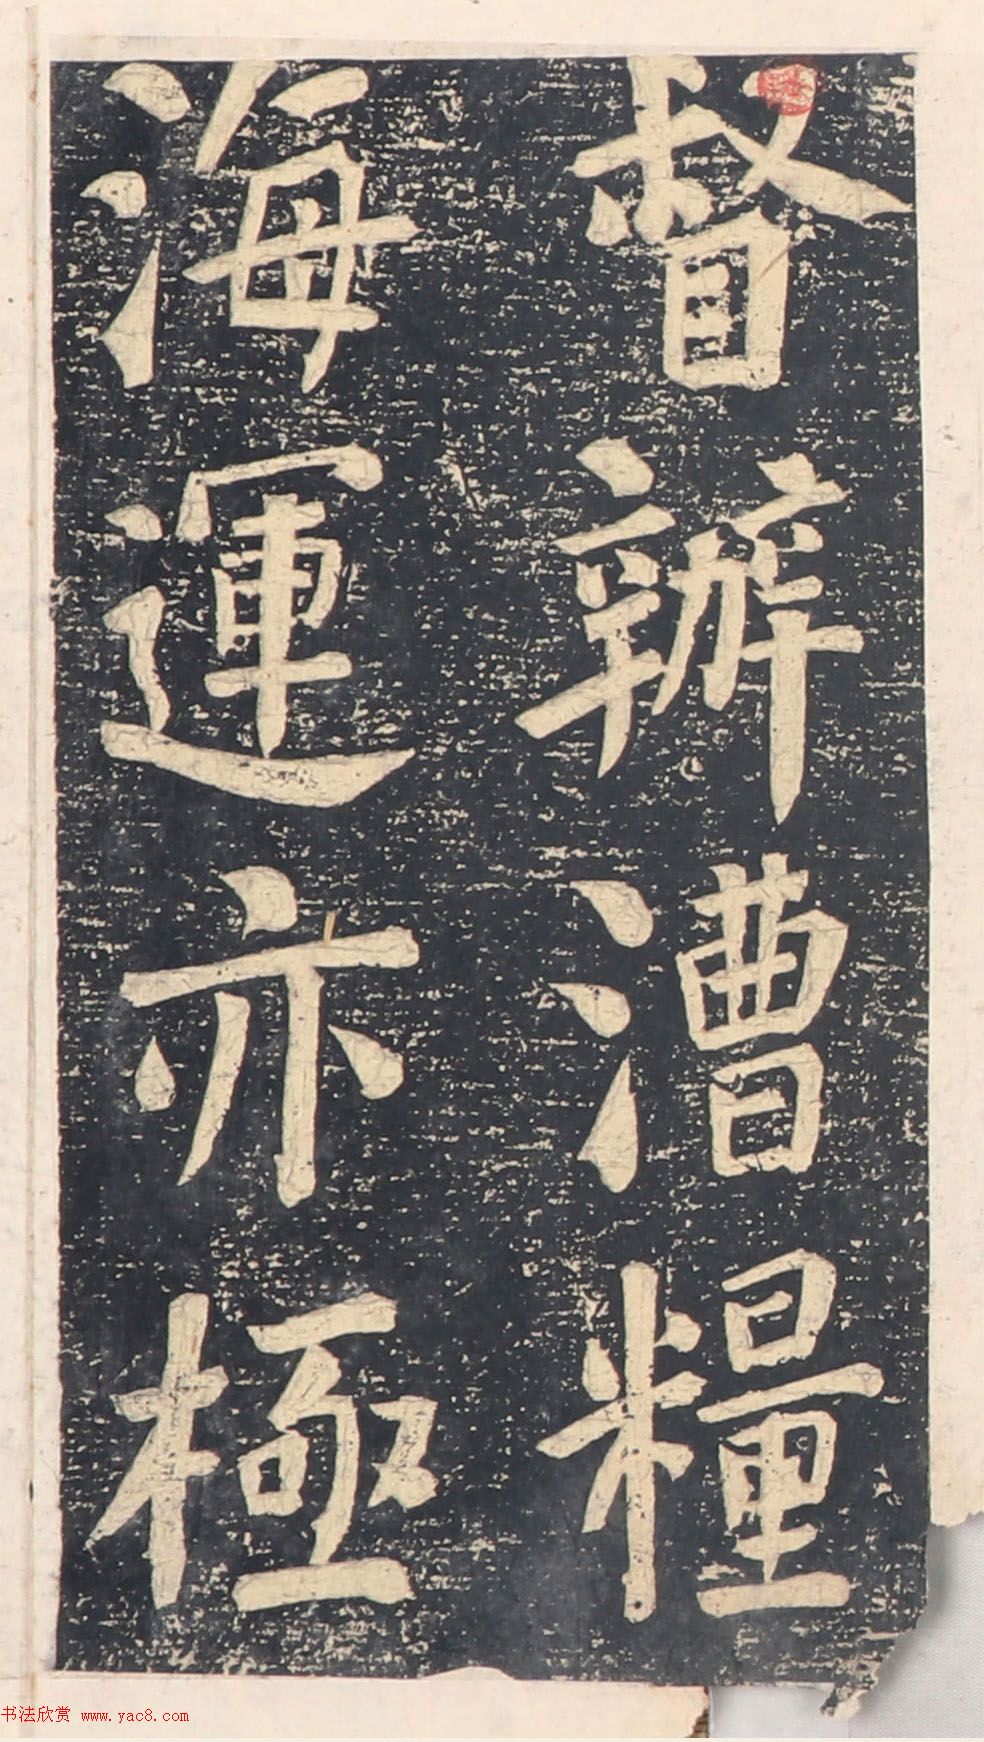 督辦漕糧
海運亦極
书法欣赏 www.yac8.com